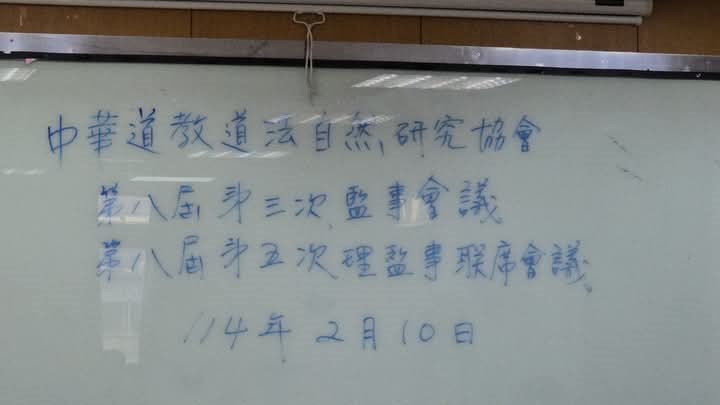 中華道教道法自然研究協會
第八屆第三次監事會議
第八屆第五次理監事联席會議
114年2月10日